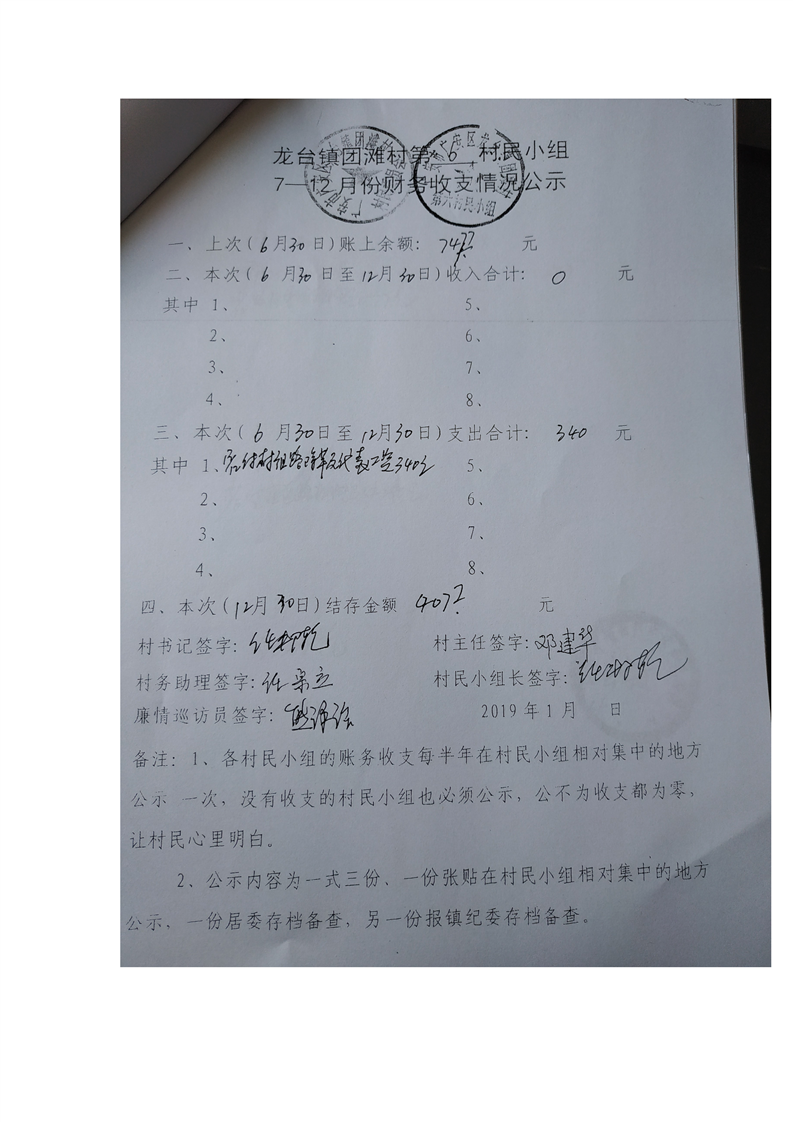 龙台镇团滩村第 6 村民小组
7—12月份财务收支情况公示
一、上次(6月30日)账上余额: 元
二、本次(6月30日至12月30日)收入合计: 0 元
其中 1、 5、
2、 6、
3、 7、
4、 8、
三、本次(6月30日至12月30日)支出合计: 340 元
其中 1、 5、
2、 6、
3、 7、
4、 8、
四、本次(12月30日)结存金额 元
村书记签字: 村主任签字:邓建华
村务助理签字: 村民小组长签字:
廉情巡访员签字: 2019年1月 日
备注:1、各村民小组的账务收支每半年在村民小组相对集中的地方
公示 一次,没有收支的村民小组也必须公示,公不为收支都为零,
让村民心里明白。
2、公示内容为一式三份、一份张贴在村民小组相对集中的地方
公示,一份居委存档备查,另一份报镇纪委存档备查。
第六村民小组